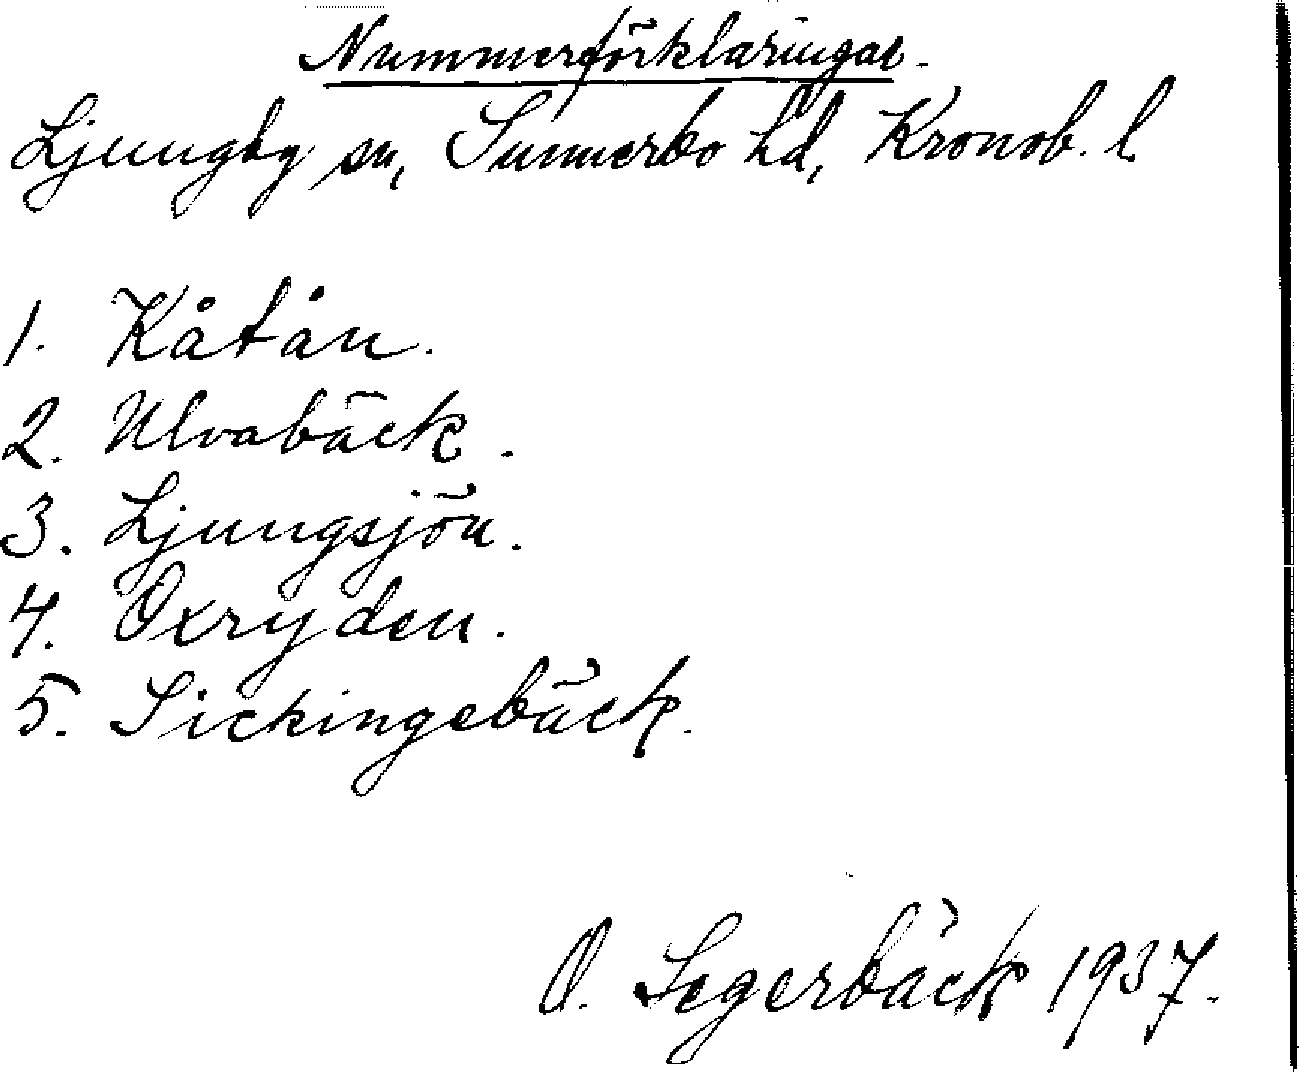 Nummerförklaringar.
Ljungby sn, Sunnerbo hd, Kronob. l.
1. Kåtån.
2. Ulvabäck.
3. Ljungsjön.
4. Oxryden.
5. Sickingebäck.
O. Segerbäck 1937.